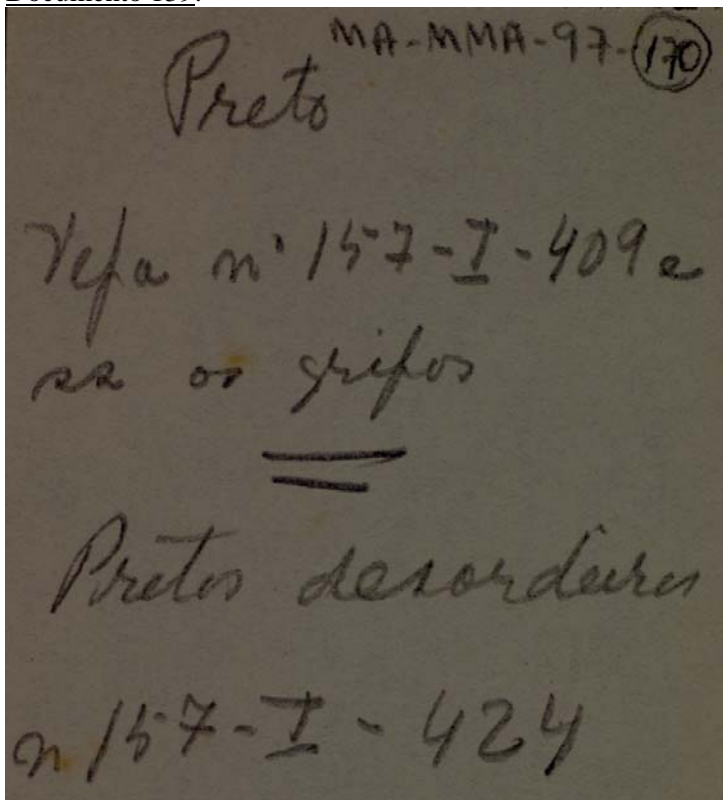 Documento 159:
MA-MMA-97-170
Preto
Veja nº 157-I-409 e
ss os grifos
Pretos desordeiros
n 157-I-424